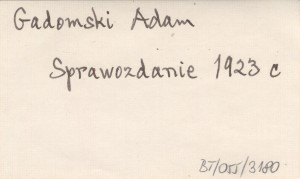 Gadomski Adam
Sprawozdanie 1923 c
BT/OIT/3180